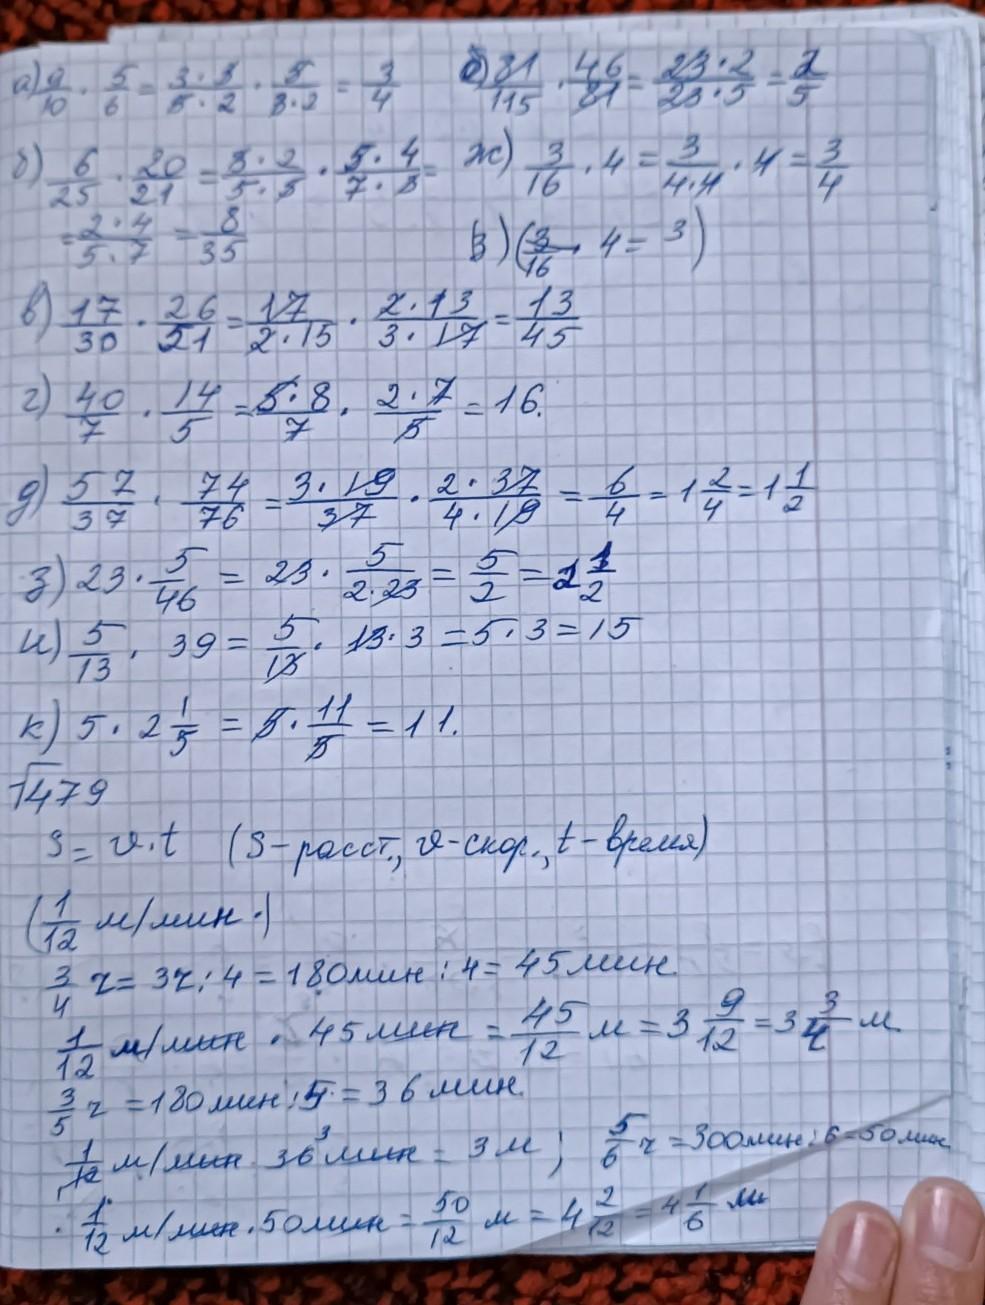 а) 9/10 · 5/6 = 3·3/5·2 · 5/3·2 = 3/4
б) 81/115 · 46/81 = 23·2/23·5 = 2/5
б) 6/25 · 20/21 = 3·2/5·5 · 5·4/7·3 =
= 2·4/5·7 = 8/35
ж) 3/16 · 4 = 3/4·4 · 4 = 3/4
з) (3/16 · 4 = 3)
в) 17/30 · 26/51 = 17/2·15 · 2·13/3·17 = 13/45
г) 40/7 · 14/5 = 5·8/7 · 2·7/5 = 16.
д) 57/37 · 74/76 = 3·19/37 · 2·37/4·19 = 6/4 = 1 2/4 = 1 1/2
з) 23 · 5/46 = 23 · 5/2·23 = 5/2 = 2 1/2
и) 5/13 · 39 = 5/13 · 13·3 = 5·3 = 15
к) 5 · 2 1/5 = 5 · 11/5 = 11.
1479
S = v·t (S - расст., v - скор., t - время)
(1/12 м/мин ·)
3/4 ч = 3ч : 4 = 180мин : 4 = 45мин.
1/12 м/мин · 45 мин = 45/12 м = 3 9/12 = 3 3/4 м
3/5 ч = 180мин : 5 = 36 мин.
1/12 м/мин · 36 3 мин = 3 м ; 5/6 ч = 300мин : 6 = 50 мин
· 1/12 м/мин · 50мин = 50/12 м = 4 2/12 = 4 1/6 м